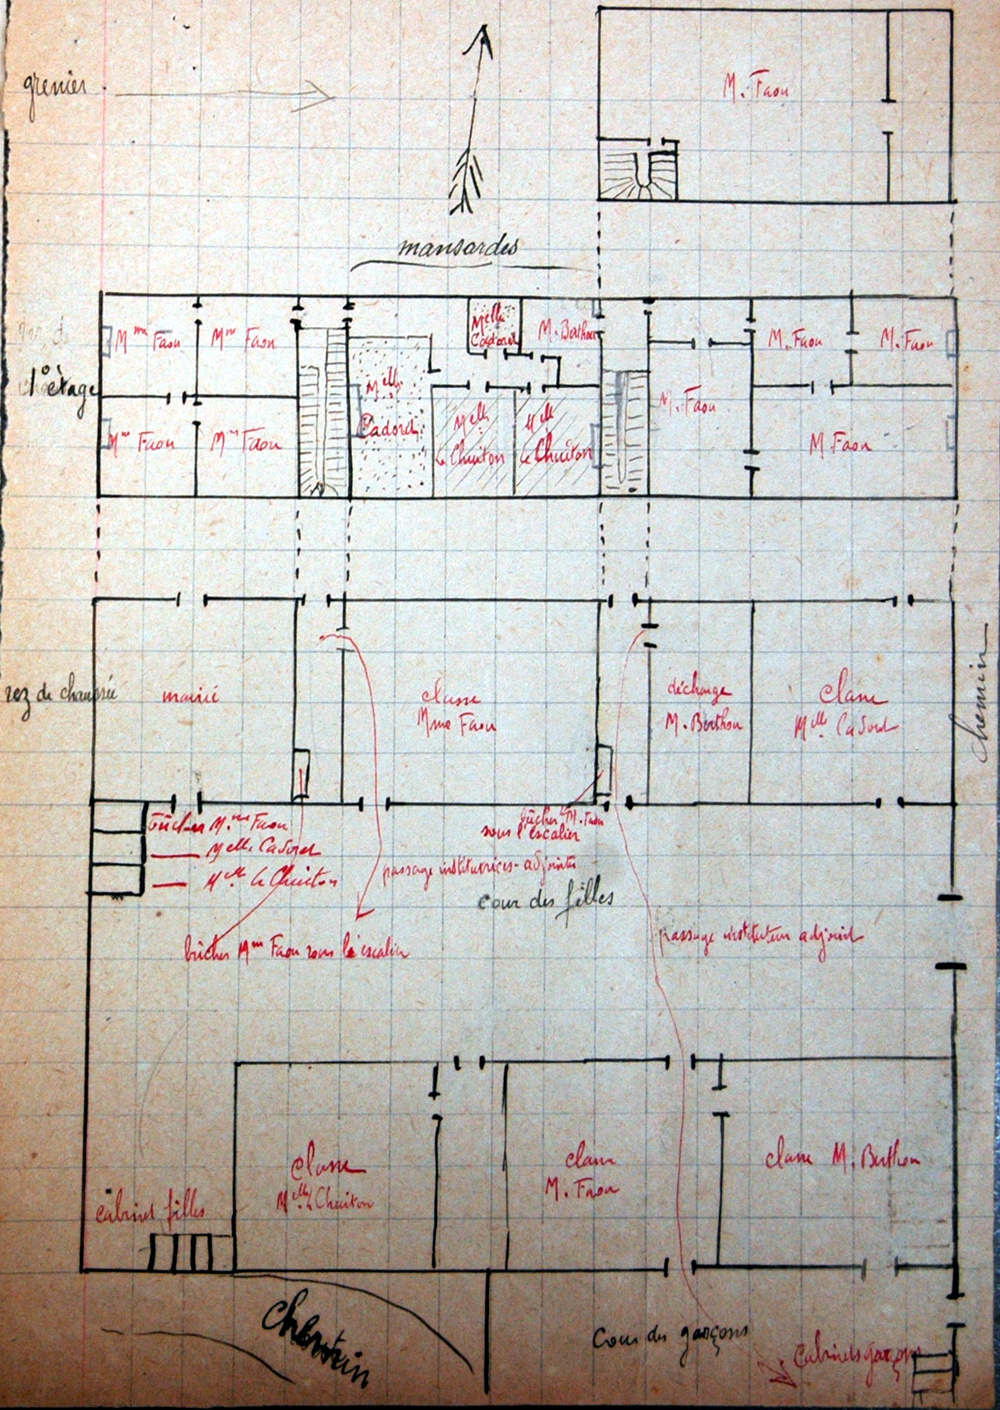 grenier
M. Faou
mansardes
1er étage
Mme Faou
Mme Faou
Melle
Cadoret
M. Berthou
M. Faou
M. Faou
Melle
Cadoret
M. Faou
Mme Faou
Mme Faou
Melle
Le Chuiton
Melle
Le Chuiton
M. Faou
rez de chaussée
mairie
classe
Mme Faou
décharge
M. Berthou
classe
Melle Cadoret
chemin
bûcher Mme Faou
Melle Cadoret
Melle Le Chuiton
bûcher M. Faou
sous l'escalier
passage institutrices-adjointes
cour des filles
bûcher Mme Faou sous l'escalier
passage instituteur adjoint
classe
Melle Le Chuiton
classe
M. Faou
classe M. Berthou
cabinet filles
chemin
Cour des garçons
Cabinets garçons